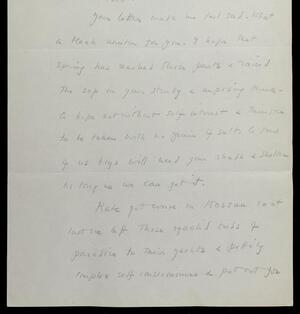 Your letter made me feel sad. What
a bleak winter for you. I hope that
spring has reached those parts & raised
the sap in your sturdy & aspiring
to hope not without self interest &
to be taken with no grain of salt. So some
of us boys will need your shade & shelter
as long as we can get it.
Kate got worse in Nassau so at
last we left those squalid ends of
paradise to their yachts &
simplex self consciousness & put out for